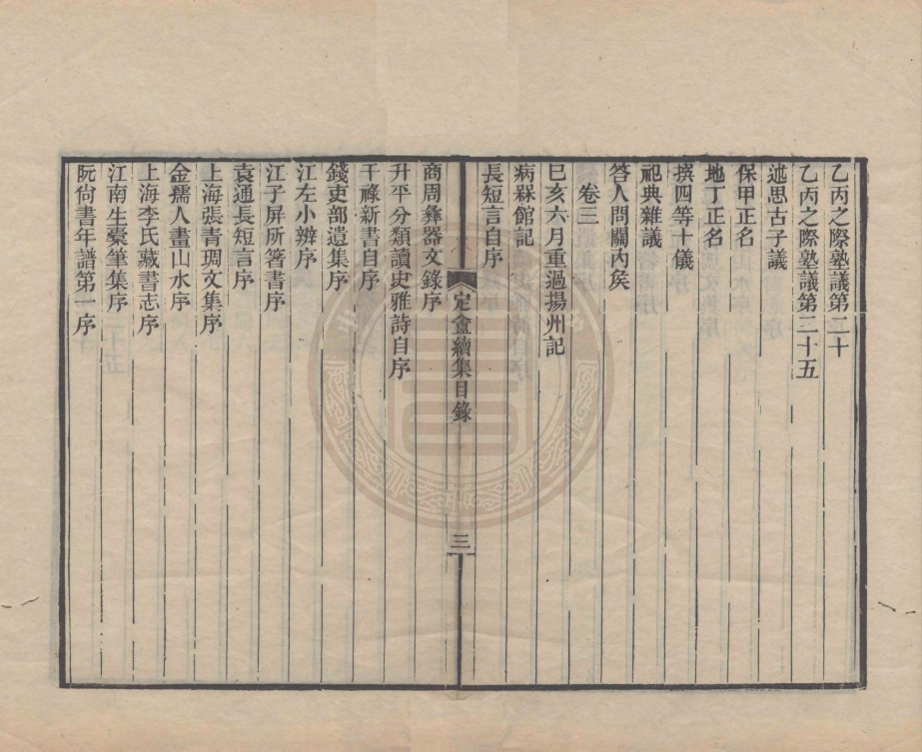 乙丙之際塾議第二十
乙丙之際塾議第二十五
述思古子議
保甲正名
地丁正名
撰四等十儀
祀典雜議
答人問關內侯
卷三
己亥六月重過揚州記
病槑館記
長短言自序
定盦續集目錄
三
商周彝器文錄序
升平分類讀史雅詩自序
干祿新書自序
錢吏部遺集序
江左小辨序
江子屏所箸書序
袁通長短言序
上海張青琱文集序
金孺人畫山水序
上海李氏藏書志序
江南生橐筆集序
阮尙書年譜第一序